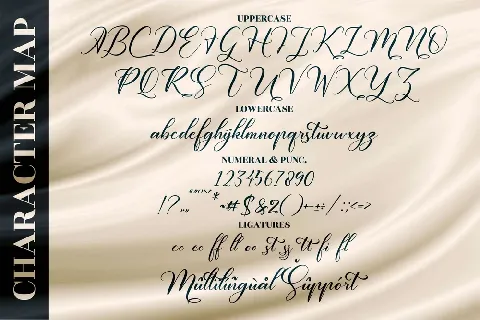 CHARACTER MAP
UPPERCASE
ABCDEFGHIJKLMNO
PQRSTUVWXYZ
LOWERCASE
abcdefghijklmnopqrstuvwxyz
NUMERAL & PUNC.
1234567890
LIGATURES
Múltilíngùål Šûppórt